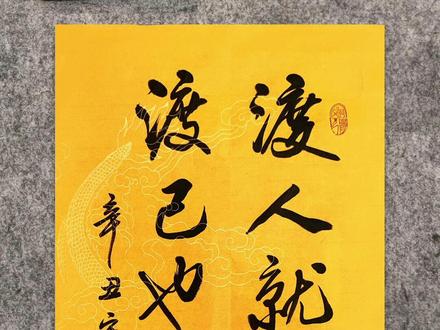 渡人就
渡己也
辛丑